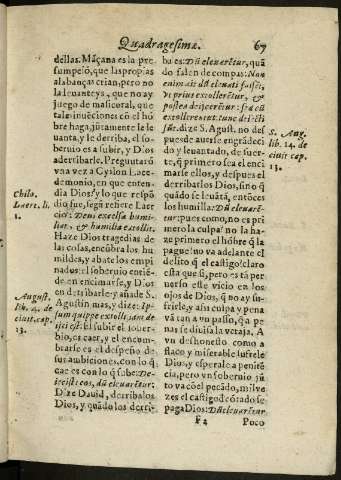 Quadragesima. 67
dellas. Mãçana es la pre-
sumpciõ, que las propias
alabanças crian, pero no
la leuanteys, que no ay
juego de masicoral, que
tales inuẽciones cõ el hõ
bre haga, jũtamente le le
uanta, y le derriba, el so-
beruio es a subir, y Dios
a derribarle. Pregũtarõ
vna vez a Cyslon Lace-
demonio, en que enten-
dia Dios? y lo que respõ
dio fue, segũ refiere Laer
cio: Deus excelsa humi-
liat, & humilia extollit.
Haze Dios tragedias de
las cosas, encũbra los hu
mildes, y abate los empi
nados: el soberuio entiẽ-
de en encimarse, y Dios
en derribarle: y añade S.
Agustin mas, y dize: Ip-
sum quippe extolli, iam de-
ijci est: El subir el sober-
bio, es caer, y el encum-
brarse es el despeño de
sus ambiciones, con lo q̃
cae es con lo q̃ sube: De-
iecisti eos, dũ eleuarẽtur:
Dize Dauid, derribalos
Dios, y quãdo los derri-
Chilo.
Laert. li.
1.
August.
lib. 14. de
ciuit. cap.
13.
ba es: Dũ eleuarẽtur, quã
do salen de compas: Non
enim ait dũ eleuati fuissẽt,
vt prius extollerẽtur, &
postea deijcerẽtur: sed cũ
extollerentur: tunc deiecti
sũt. dize S. Agust. no des
pues de auerse engradeci
do y leuantado, de suer-
te, q̃ primero sea el enci
marse ellos, y despues el
derribarlos Dios, sino q̃
quãdo se leuãtã, entõces
los humilla: Dũ eleuarẽ-
tur: pues como, no es pri
mero la culpa? no la ha-
ze primero el hõbre q̃ la
pague? no va adelante el
delito q̃ el castigo? claro
esta que si, pero es tã per
uerso este vicio en los
ojos de Dios, q̃ no ay su-
frirle, y assi culpa y pena
vã tan a vn passo, q̃ a pe
nas se diuisa la vẽtaja. A
vn deshonesto como a
flaco y miserable sufrele
Dios, y esperale a penitẽ
cia, pero vn soberuio jũ
to va cõ el pecado, mil ve-
zes el castigo: de cõtado se
paga Dios: Dũ eleuarẽtur
S. Aug.
lib. 14. de
ciuit. cap.
13.
F 2 Poco